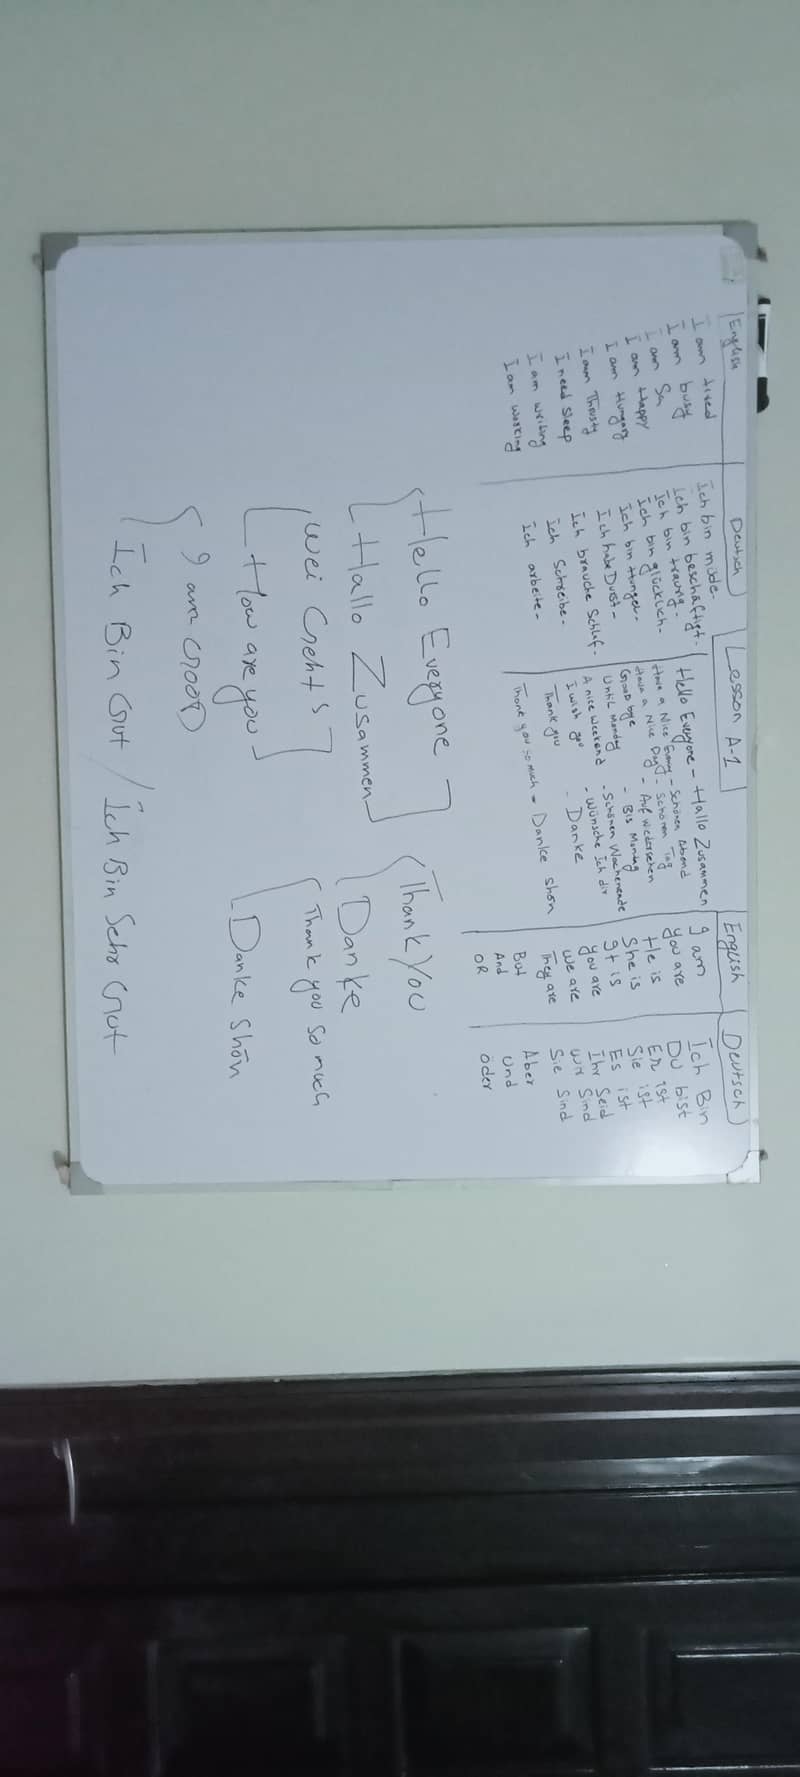 Lesson A-1
English
I am tired
I am busy
I am Sa
I am Happy
I am Hungary
I am Thrusty
I need Sleep
I am writing
I am working
Deutsch
Ich bin müde.
Ich bin beschäftigt.
Ich bin traurig.
Ich bin glücklich.
Ich bin Hunger.
Ich habe Durst.
Ich brauche Schlaf.
Ich Schreibe.
Ich arbeite.
Hello Everyone - Hallo Zusammen
Have a Nice - Schönen Abend
Have a Nice Day - Schönen Tag
Good bye - Auf wiedersehen
Until Monday - Bis Montag
A nice weekend - Schönen
I wish you - Wünsche Ich dir
Thank you - Danke
Thank you so much = Danke shön
English
I am
You are
He is
She is
It is
You are
We are
They are
But
And
OR
Deutsch
Ich Bin
Du bist
Er ist
Sie ist
Es ist
Ihr Seid
wir Sind
Sie Sind
Aber
Und
öder
Hello Everyone
Hallo Zusammen
Wei Geht's
How are you
I am GOOD
Ich Bin Gut / Ich Bin Sehr Gut
Thank You
Danke
Thank you so much
Danke Shön